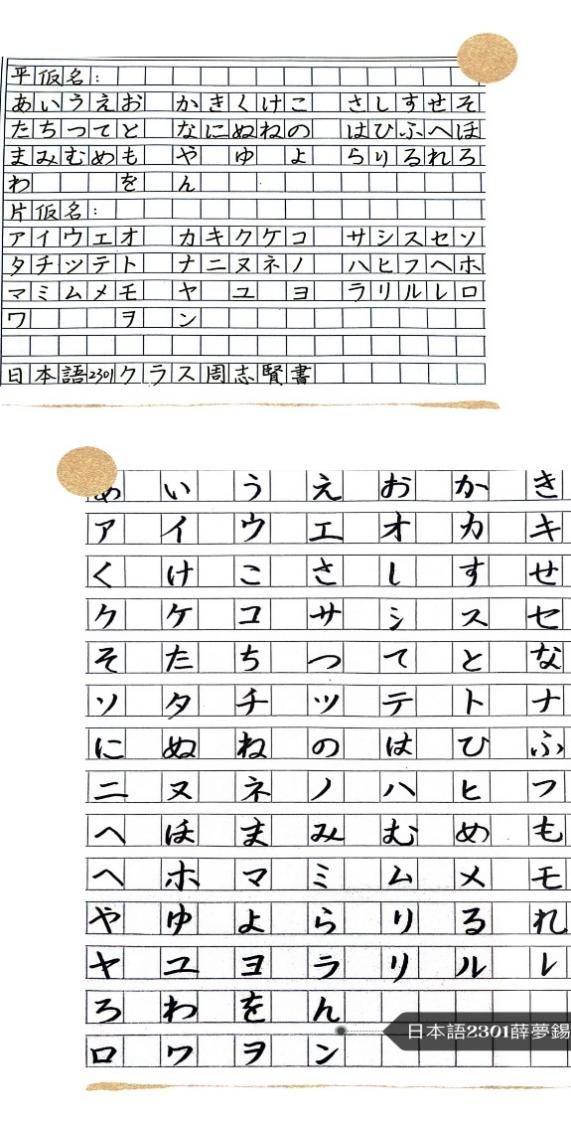 平仮名：
あいうえお かきくけこ さしすせそ
たちつてと なにぬねの はひふへほ
まみむめも や ゆ よ らりるれろ
わ を ん
片仮名：
アイウエオ カキクケコ サシスセソ
タチツテト ナニヌネノ ハヒフヘホ
マミムメモ ヤ ユ ヨ ラリルレロ
ワ ヲ ン
日本語2301クラス周志賢書
あ い う え お か き
ア イ ウ エ オ カ キ
く け こ さ し す せ
ク ケ コ サ シ ス セ
そ た ち つ て と な
ソ タ チ ツ テ ト ナ
に ぬ ね の は ひ ふ
ニ ヌ ネ ノ ハ ヒ フ
へ ほ ま み む め も
ヘ ホ マ ミ ム メ モ
や ゆ よ ら り る れ
ヤ ユ ヨ ラ リ ル レ
ろ わ を ん
日本語2301薛夢錫
ロ ワ ヲ ン